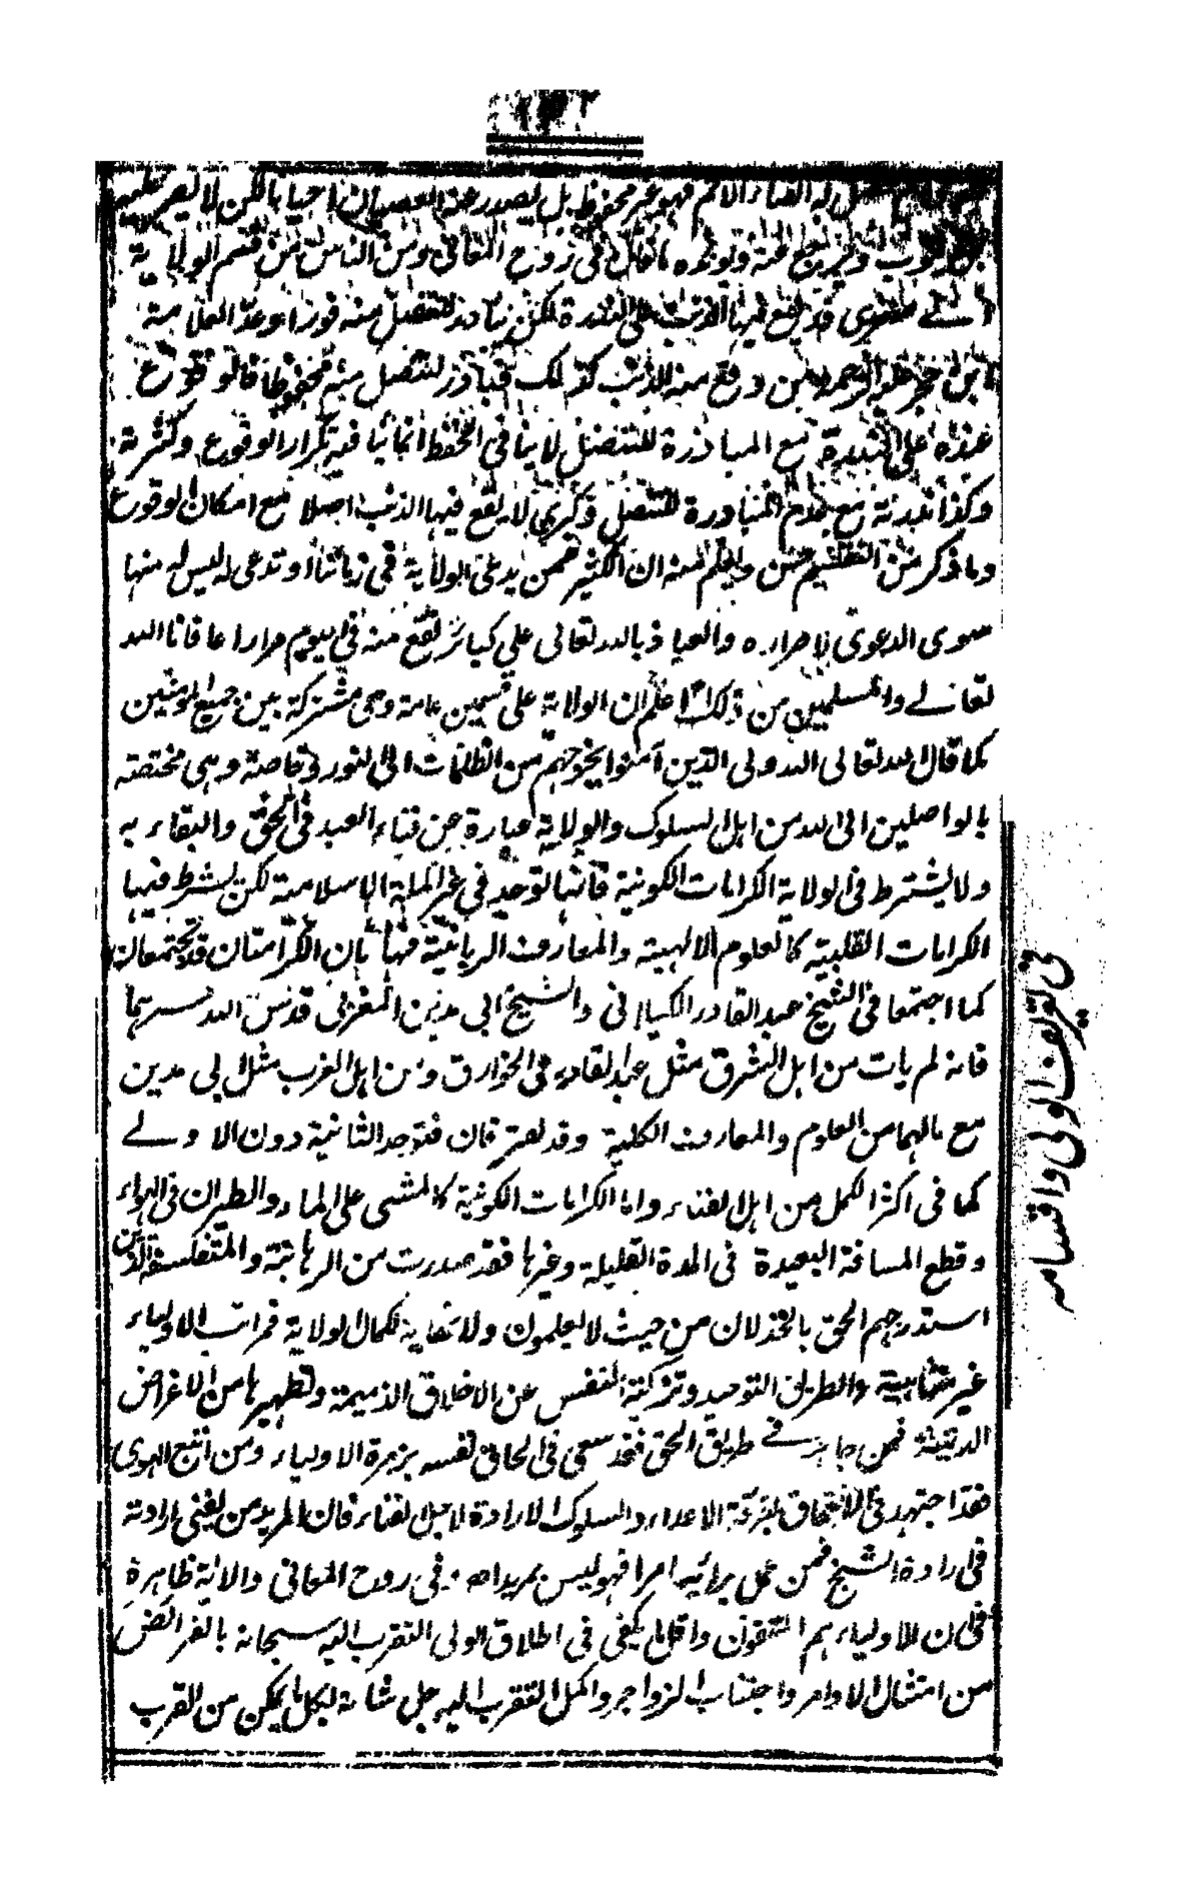 له القضاء الالهم فهو غير محفوظ بل يصدر عنه العصيان احيانا لكن لا يصر
ما قال في روح المعاني ومن الناس من قسم الولاية
الے صغرى قد يقع فيها الذنب على الندرة لكن يبادر للتنصل منه فورا وعد العلامة
ابن حجر عليه الرحمة من وقع منه الذنب كذلك فبادر للتنصل منه محفوظا قالوا وقوع
عنده على الندرة مع المبادرة للتنصل لا ينافي الحفظ انما ينافيه تكرار الوقوع وكثرته
وكذا ندرته مع عدم المبادرة للتنصل وكبرى لا يقع فيها الذنب اصلا مع امكان الوقوع
وما ذكر من التقسيم حسن ويعلم منه ان الكثير ممن يدعي الولاية في زماننا او تدعى له ليس له منها
سوى الدعوى لاصراره والعياذ بالله تعالى على كبائر تقع منه في اليوم مرارا عافانا الله
تعالے والمسلمين من ذلك اعلم ان الولاية على قسمين عامة وهي مشتركة بين جميع المومنين
كما قال الله تعالى الله ولي الذين آمنوا يخرجهم من الظلمات الى النور وخاصة وهي مختصة
بالواصلين الى الله من اهل السلوك والولاية عبارة عن فناء العبد في الحق والبقاء به
ولا يشترط في الولاية الكرامات الكونية فانها توجد في غير الملة الاسلامية لكن يشترط فيها
الكرامات القلبية كالعلوم الالهية والمعارف الربانية فهاتان الكرامتان قد تجتمعان
كما اجتمعا في الشيخ عبد القادر الكيلاني والشيخ ابي مدين المغربي قدس الله سرهما
فانه لم يات من اهل الشرق مثل عبد القادر في الخوارق ومن اهل الغرب مثل ابي مدين
مع ما لهما من العلوم والمعارف الكلية وقد تفترقان فتوجد الثانية دون الاولے
كما في اكثر الكمل من اهل الفناء واما الكرامات الكونية كالمشي على الماء والطيران في الهواء
وقطع المسافة البعيدة في المدة القليلة وغيرها فقد صدرت من الرهابنة والمتفلسفة الذين
استدرجهم الحق بالخذلان من حيث لا يعلمون ولا نهاية لكمال الولاية فمراتب الاولياء
غير متناهية والطريق التوحيد وتزكية النفس عن الاخلاق الذميمة وتطهيرها من الاغراض
الدنية فمن جاهد في طريق الحق فقد سعى في الحاق نفسه بزمرة الاولياء ومن اتبع الهوى
فقد اجتهد في الالتحاق بفرقة الاعداء والسلوك الارادة لاهل الفناء فان المريد من يفني ارادته
في ارادة الشيخ فمن عمل برائيه امرا فهو ليس بمريد اھ وفي روح المعاني والآية ظاهرة
في ان الاولياء هم المتقون واقل ما يكفي في اطلاق الولي التقرب اليه سبحانه بالفرائض
من امتثال الاوامر واجتناب الزواجر واكمل التقرب اليه جل شانه بكل ما يمكن من القرب
في تعريف الولي واقسامه